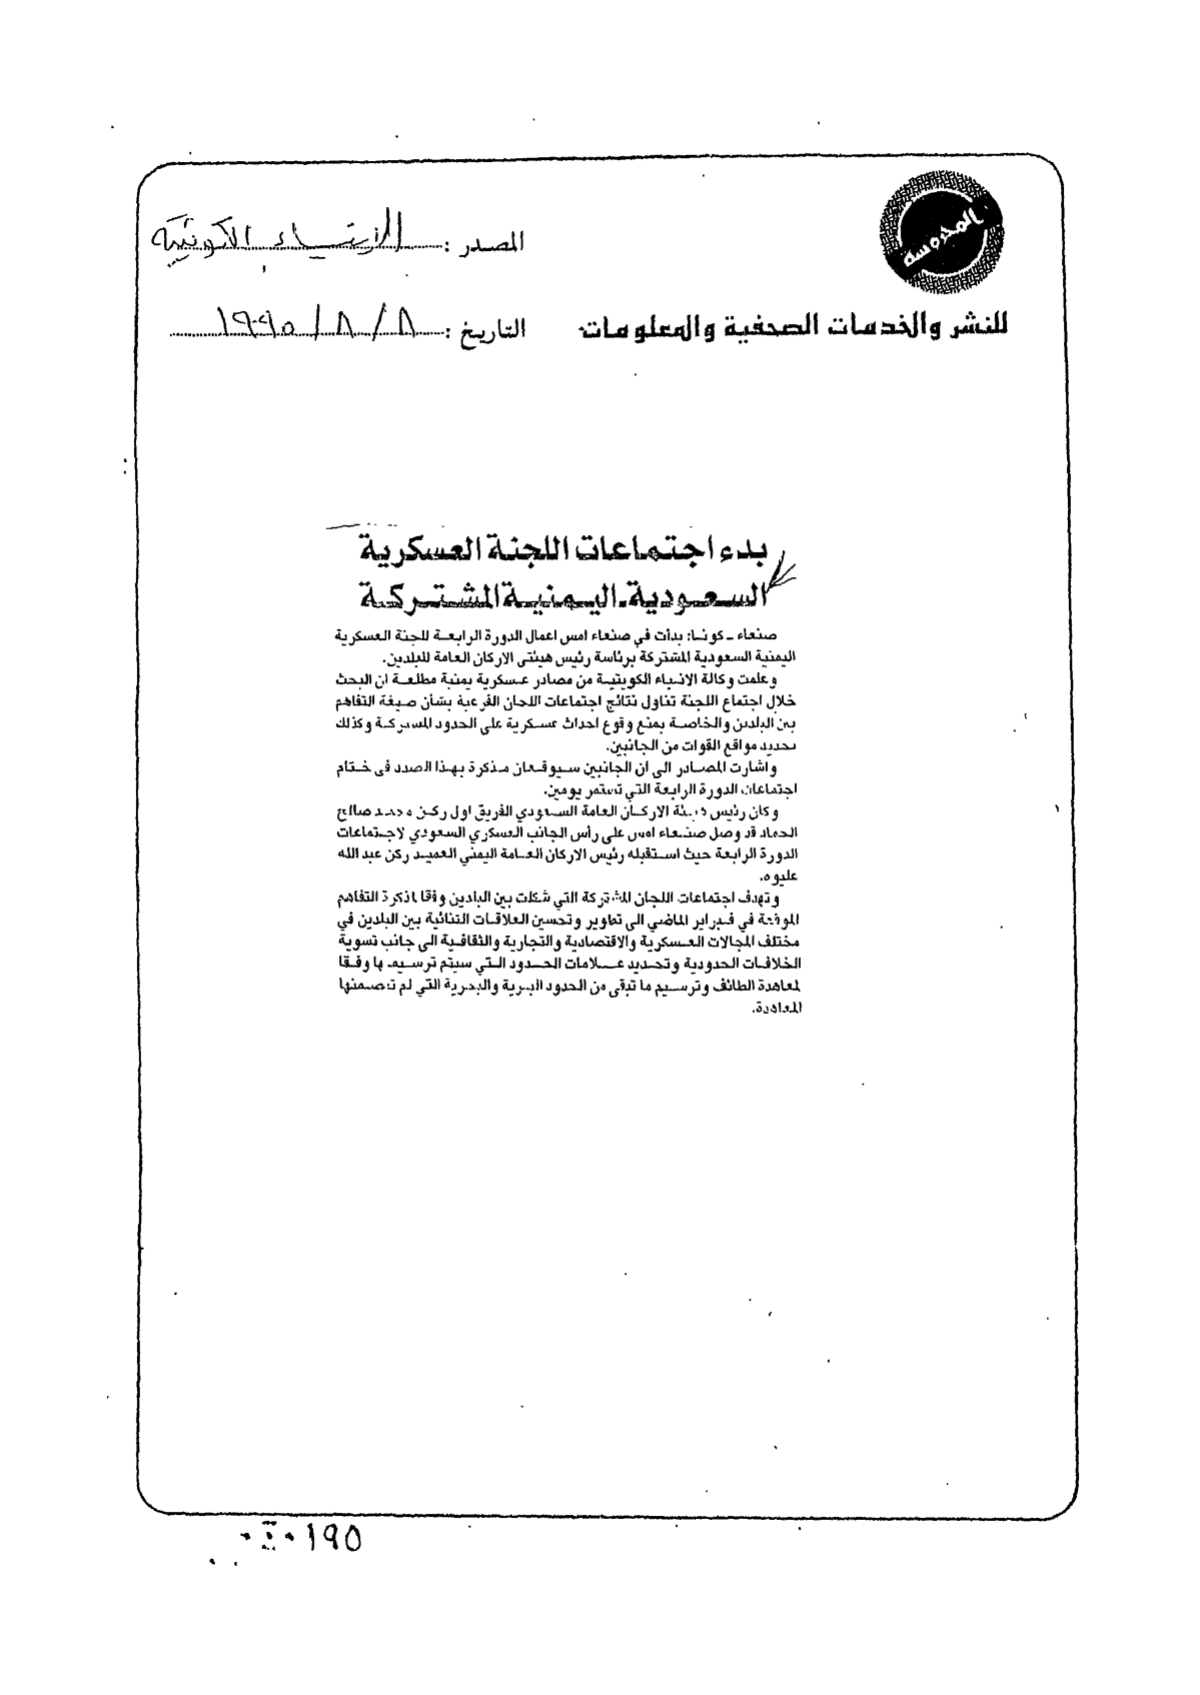 المحروسه
المصدر : الانباء الكويتية
للنشر والخدمات الصحفية والمعلومات
التاريخ : ٨ / ٨ / ١٩٩٥
بدء اجتماعات اللجنة العسكرية
السعودية ـ اليمنية المشتركة
صنعاء ـ كونا: بدأت في صنعاء امس اعمال الدورة الرابعة للجنة العسكرية
اليمنية السعودية المشتركة برئاسة رئيس هيئتي الاركان العامة للبلدين.
وعلمت وكالة الانباء الكويتية من مصادر عسكرية يمنية مطلعة ان البحث
خلال اجتماع اللجنة تناول نتائج اجتماعات اللجان الفرعية بشأن صيغة التفاهم
بين البلدين والخاصة بمنع وقوع احداث عسكرية على الحدود المشتركة وكذلك
تحديد مواقع القوات من الجانبين.
واشارت المصادر الى ان الجانبين سيوقعان مذكرة بهذا الصدد في ختام
اجتماعات الدورة الرابعة التي تستمر يومين.
وكان رئيس هيئة الاركان العامة السعودي الفريق اول ركن محمد صالح
الحماد قد وصل صنعاء امس على رأس الجانب العسكري السعودي لاجتماعات
الدورة الرابعة حيث استقبله رئيس الاركان العامة اليمني العميد ركن عبد الله
عليوه.
وتهدف اجتماعات اللجان المشتركة التي شكلت بين البلدين وفقا لمذكرة التفاهم
الموقعة في فبراير الماضي الى تطوير وتحسين العلاقات الثنائية بين البلدين في
مختلف المجالات العسكرية والاقتصادية والتجارية والثقافية الى جانب تسوية
الخلافات الحدودية وتحديد علامات الحدود التي سيتم ترسيمها وفقا
لمعاهدة الطائف وترسيم ما تبقى من الحدود البرية والبحرية التي لم تتضمنها
المعاهدة.
١٩٥